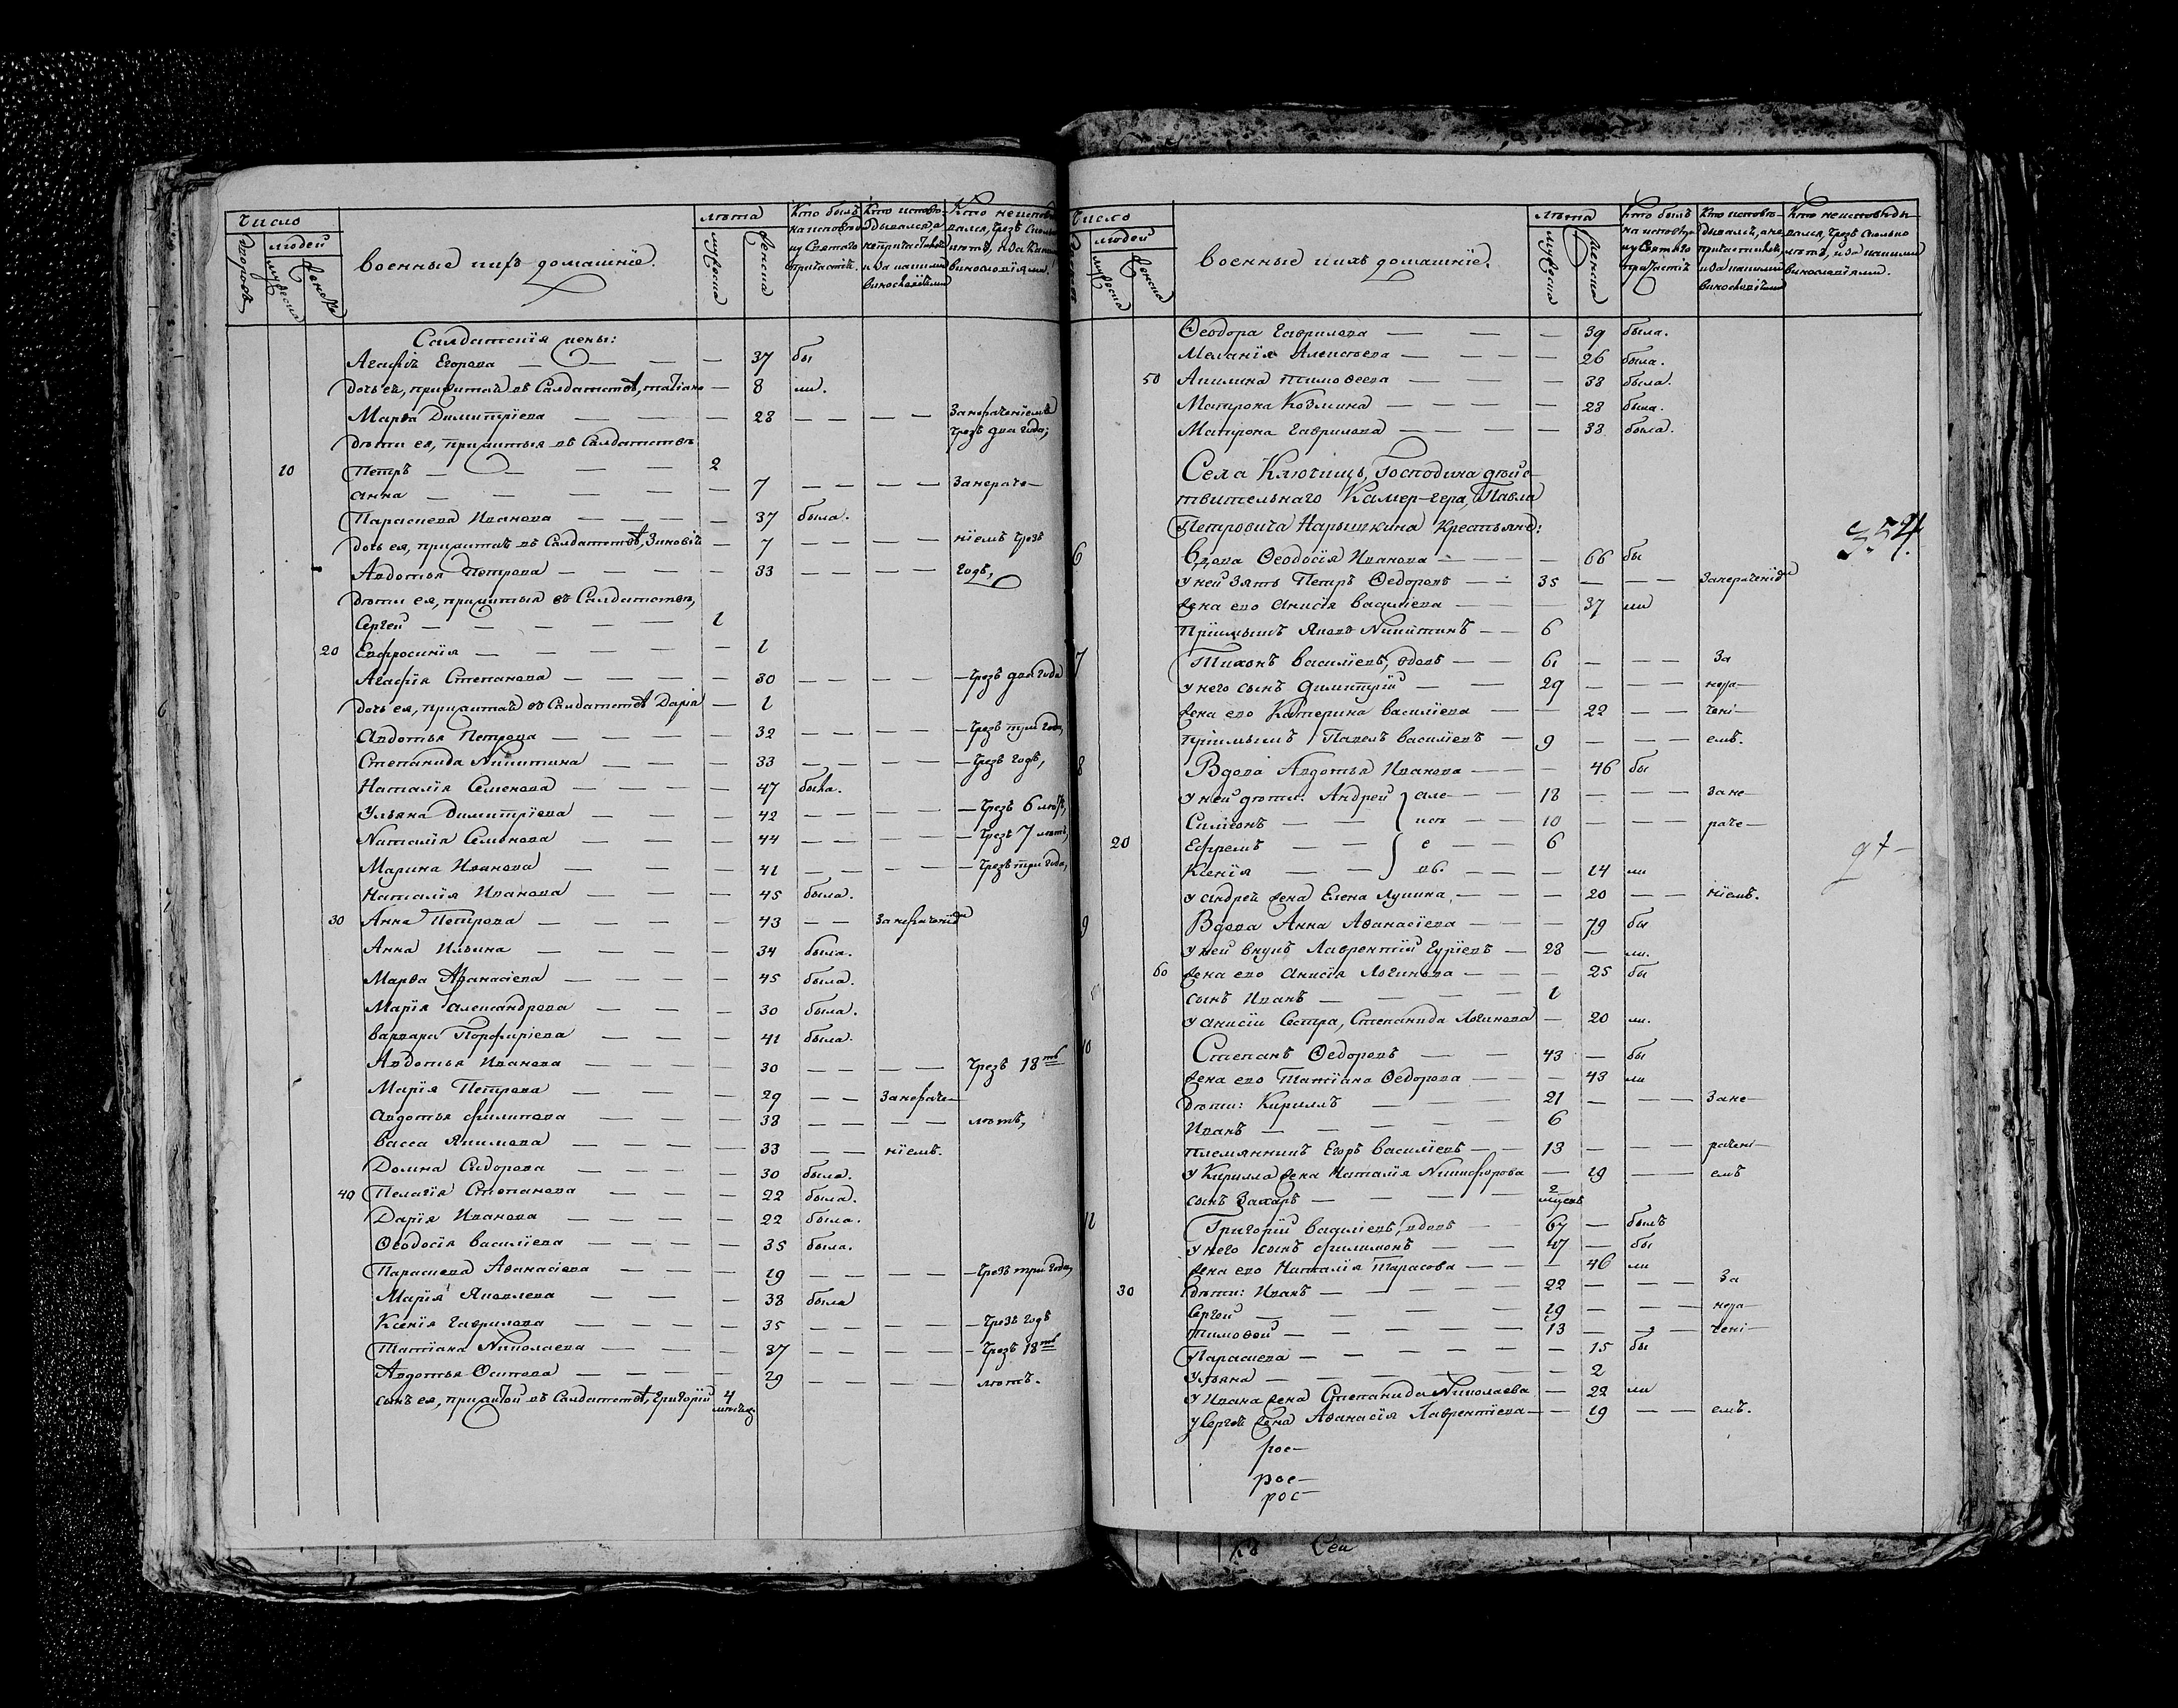 Число
людей
дворовъ
мужеска
женска
военные ихъ домашніе.
лѣта
мужеска
женска
Кто былъ на исповѣди у Святаго причастія.
Кто исповѣдывался, а не причастился и за какими винословіями
Кто неисповѣдывался, чрезъ сколько лѣтъ, и за какими винословіями.
Салдатскія жены:
Агафія Егорова — — — 37 бы
дочь ея, прижитая въ Салдатствѣ, татіана — 8 ли.
Марѳа Димитріева — — — 28 — — — — Занераченіемъ
чрезъ два года;
дѣти ея, прижитыя въ Салдатствѣ,
10 Петръ — — — — 2
анна — — — — — 7 — — — — Занераче—
Параскева Иванова — — — 37 была.
дочь ея, прижитая въ Салдатствѣ, Зиновія — 7 — — — — ніемъ чрезъ
Авдотья Петрова — — — — 33 — — — — годъ,
дѣти ея, прижитыя въ Салдатствѣ,
Сергей — — — — — 1
20 Евфросинія — — — — — 1
Агафія Степанова — — — — 30 — — — — чрезъ два года
дочь ея, прижитая въ Салдатствѣ Дарія — 1
Авдотья Петрова — — — — 32 — — — — чрезъ три года,
Степанида Никитина — — — 33 — — — — чрезъ годъ,
Наталія Семенова — — — — 47 была.
Ульяна Димитріева — — — 42 — — — — чрезъ 6 лѣтъ,
Наталія Семенова — — — 44 — — — — чрезъ 7 лѣтъ,
Марина Иванова — — — 41 — — — — чрезъ три года,
Наталія Иванова — — — 45 была.
30 Анна Петрова — — — — 43 — — Занераченіемъ
Анна Ильина — — — — 34 была.
Марѳа Аѳанасіева — — — 45 была.
Марія александрова — — — 30 была.
варвара Порфиріева — — — 41 была.
Авдотья Иванова — — — 30 — — — — чрезъ 18ть
Марія Петрова — — — 29 — — Занераче—
авдотья филипова — — — 38 — — — — лѣтъ,
васса Якимова — — — — 33 — — ніемъ.
Домна Сидорова — — — — 30 была.
40 Пелагія Степанова — — — 22 была.
Дарія Иванова — — — — 22 была.
Ѳеодосія василіева — — — — 35 была.
Параскева Аѳанасіева — — — 19 — — — — чрезъ три года,
Марія Яковлева — — — 38 была
Ксенія гаврилова — — — — 35 — — — — чрезъ годъ
Татіана Николаева — — — — 37 — — — — чрезъ 18ть
Авдотья Осипова — — — — 29 — — — — лѣтъ.
сынъ ея, прижитой въ Салдатствѣ, григорій 4
Число
людей
мужеска
женска
военные ихъ домашніе.
лѣта
мужеска
женска
Кто былъ на исповѣди у Святаго причастія
Кто исповѣдывался, а не причастился, и за какими винословіями
Кто неисповѣдывался, чрезъ сколько лѣтъ, и за какими винословіями.
Ѳеодора гаврилова — — — 39 была.
Меланія Алексѣева — — — — 26 была.
50 Акилина тимоѳеева — — — 38 была.
Матрона Козмина — — — — 28 была.
Матрона гаврилова — — — — 38 была.
Села Ключищь, Господина дѣйс-
твительнаго Камер-гера, Павла
Петровича Нарышкина крестьянѣ:
354
6 Вдова Ѳеодосія Иванова — — 66 бы
у ней зять Петръ Ѳедоровъ — — 35 — — — Занераченіемъ
жена ево Анисія василіева — — 37 ли
пріимышъ Яковъ Никитинъ — — 6
7 Тихонъ василіевъ, вдовъ — — 61 — — — За
у него сынъ димитрій — — 29 — — — нера—
жена ево Катерина василіева — — 22 — — чені—
пріимышъ Павелъ василіевъ — 9 — — — емъ.
8 Вдова Авдотья Иванова — — — 46 бы
у ней дѣти: Андрей } але— — 18 — — — Зане—
Симеонъ — — — 10 — — — раче—
20 Ефремъ — — е — — 6
Ксенія — — — — — 14 ли
у андрея жена Елена лукина, — — — 20 — — ніемъ.
9 Вдова Анна Аѳанасіева — — — 79 бы
у ней внукъ Лаврентій гуріевъ — 28 — ли.
60 жена ево анисія логинова — — — 25 бы
сынъ Иванъ — — — — — 1
у анисіи сестра, Степанида логинова — 20 ли.
10 Степанъ Ѳедоровъ — — 43 — бы
жена ево Татіана Ѳедорова — — — 43 ли
дѣти: Кириллъ — — — 21 — — — Зане—
Иванъ — — — — — 6
племянникъ Егоръ василіевъ — — 13 — — — рачені—
у Кирилла жена Наталія Никифорова — 19 — — емъ
сынъ Захаръ — — — — 2
11 Григорій василіевъ, вдовъ — — 67 — былъ
у него сынъ филимонъ — — 47 — бы
жена ево Наталія тарасова — — — 46 ли
30 дѣти: Иванъ — — — — 22 — — — За
Сергей — — — — 19 — — — нера—
тимоѳей — — — — — 13 — — — чені—
Параскева — — — — — — 15 бы
Ульяна — — — — — — 2
у Ивана жена Степанида Николаева — 22 ли
у Сергея жена Аѳанасія Лаврентіева — — 19 — — емъ.
рос—
рос—
рос—